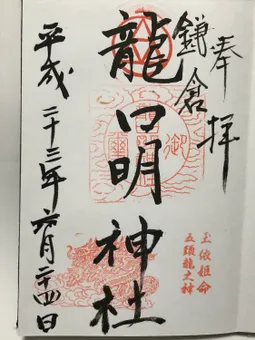 奉拝
鎌倉
龍口明神社
平成二十三年六月二十四日
玉依姫命
五頭龍大神